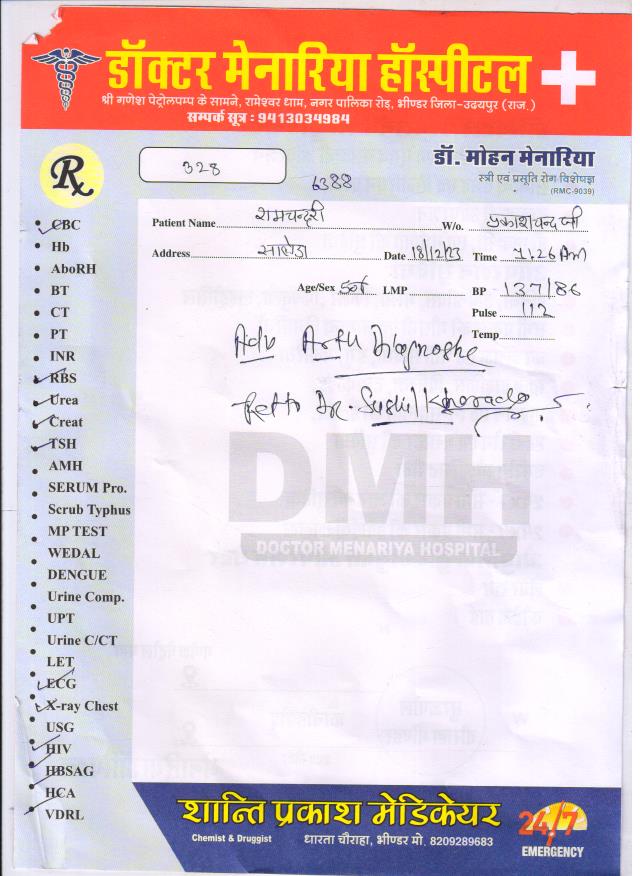 डॉक्टर मेनारिया हॉस्पीटल
श्री गणेश पेट्रोलपम्प के सामने, रामेश्वर धाम, नगर पालिका रोड़, भीण्डर जिला-उदयपुर (राज.)
सम्पर्क सूत्र : 9413034984
Rx
328
6388
डॉ. मोहन मेनारिया
स्त्री एवं प्रसूति रोग विशेषज्ञ
(RMC-9039)
Patient Name रामचन्द्री W/o. प्रकाशचन्द जी
Address Date 18/12/23 Time 11:26 AM
Age/Sex LMP BP 137/86
Pulse 112
Temp
Adv
Ref to Dr. Sushil
CBC
Hb
AboRH
BT
CT
PT
INR
RBS
Urea
Creat
TSH
AMH
SERUM Pro.
Scrub Typhus
MP TEST
WEDAL
DENGUE
Urine Comp.
UPT
Urine C/CT
LET
ECG
X-ray Chest
USG
HIV
HBSAG
HCA
VDRL
DMH
DOCTOR MENARIYA HOSPITAL
शान्ति प्रकाश मेडिकेयर
Chemist & Druggist धारता चौराहा, भीण्डर मो. 8209289683
24/7
EMERGENCY